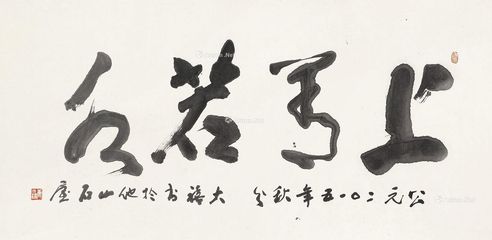 上善若水
公元二〇一五年秋分 大禧書於他山石廬